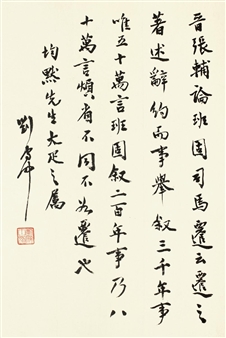 晋張輔論班固司馬遷云遷之
著述辭約而事舉叙三千年事
唯五十萬言班固叙二百年事乃八
十萬言煩省不同不如遷也
均默先生大疋之属
劉